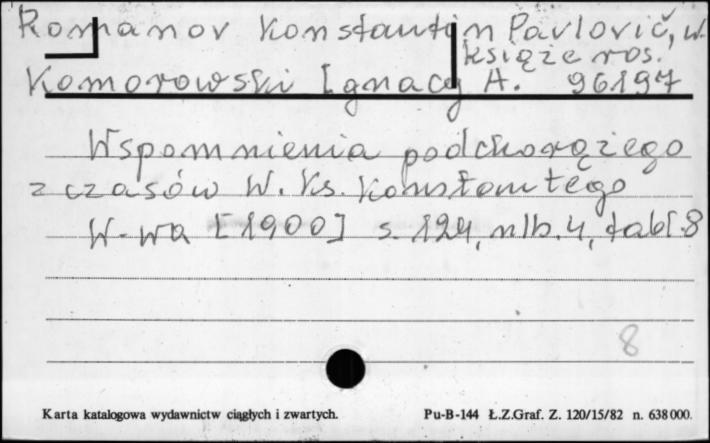 Romanov Konstantin Pavlovič, w.
książe ros.
Komorowski Ignacy A. 96197
Wspomnienia podchorążego
z czasów W. Ks. Konstantego
W-wa [1900] s. 124, nlb. 4, tabl. 8
8
Karta katalogowa wydawnictw ciągłych i zwartych. Pu-B-144 Ł.Z.Graf. Z. 120/15/82 n. 638000.